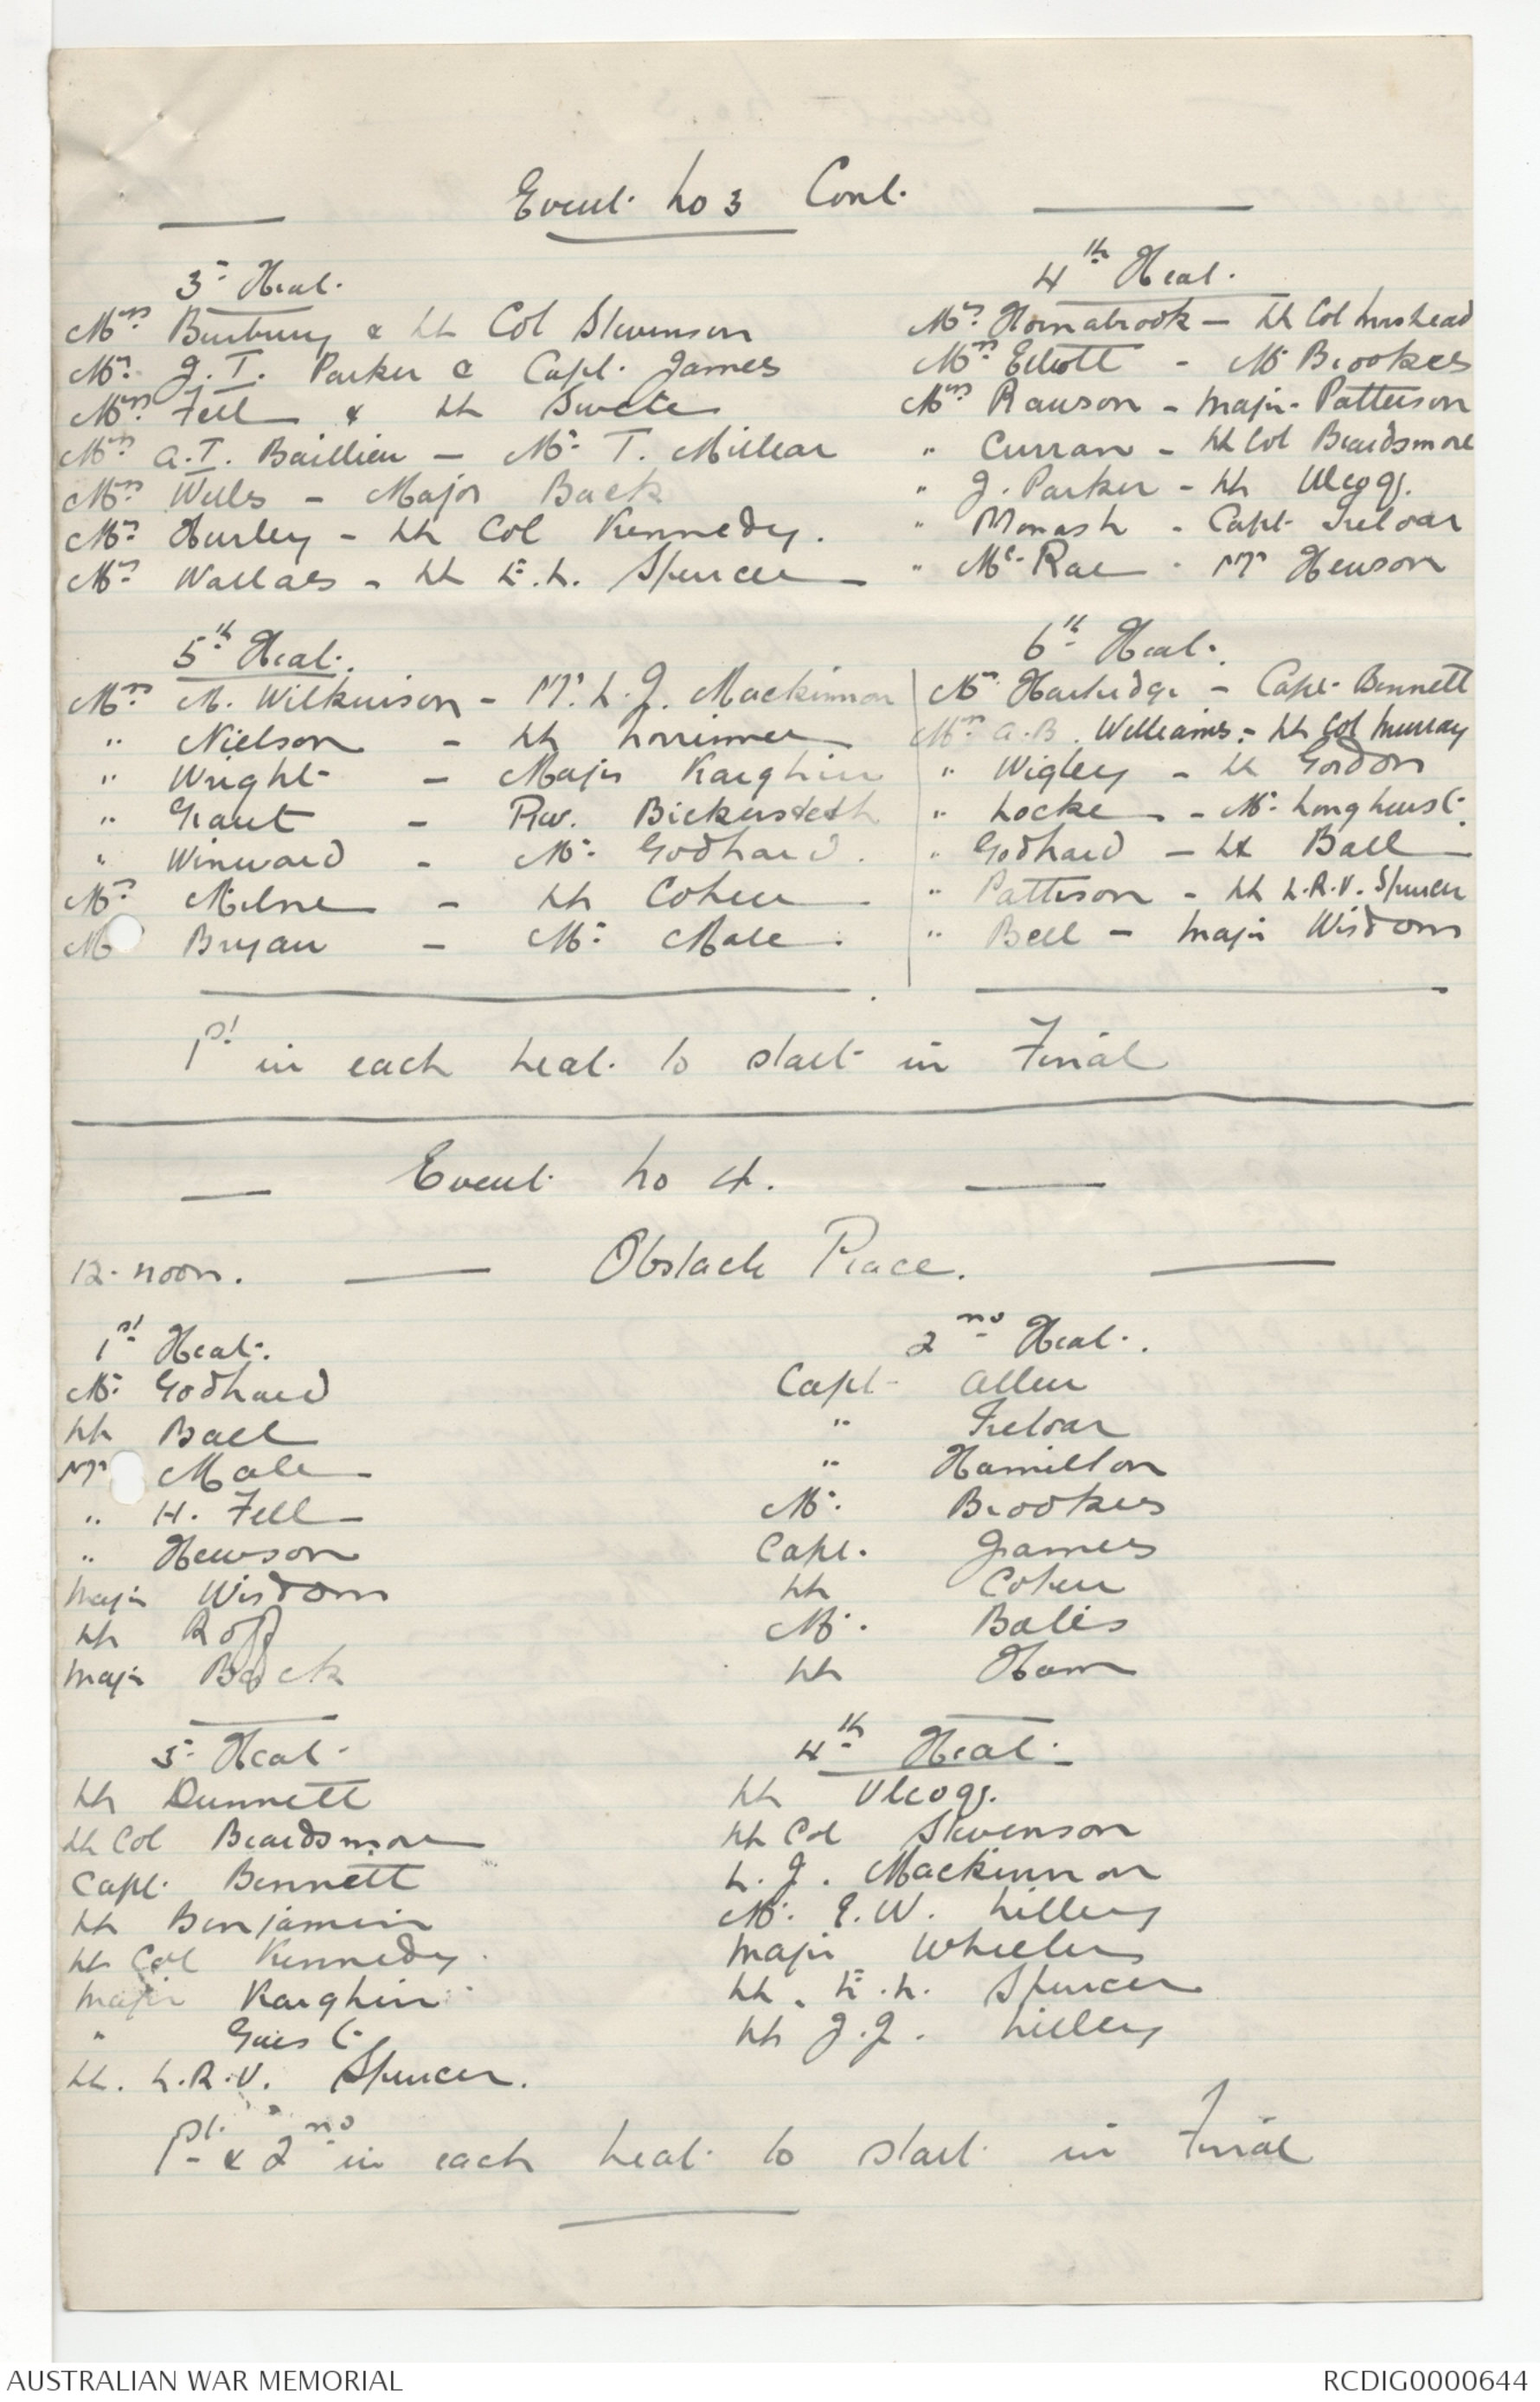 Event No 3 Cont.
3rd Heat.
Mrs Burbury & Lt Col Stevenson
Mrs J. T. Parker & Capt. James
Mrs Fell & Lt Swete
Mrs A.T. Baillieu - Mr T. Millear
Mrs Wills - Major Back
Mrs Hurley - Lt Col Kennedy.
Mrs - Lt E.L. Spencer
4th Heat.
Mrs Hornabrook - Lt Col
Mrs Elliott - Mr Brookes
Mrs Rawson - Major Patterson
" Curran - Lt Col Beardsmore
" J. Parker - Lt
" Monash - Capt Treloar
" McRae - Mr Hewson
5th Heat.
Mrs M. Wilkinson - Mr L.J. Mackinnon
" Nielson - Lt Lorrimer
" Wright - Major Karghin
" Grant - Rev. Bickersteth
" Winward - Mr Godhard.
Mrs Milne - Lt Cohen
M Bryan - Mr Male.
6th Heat.
Mrs Hartridge - Capt Bennett
Mrs A.B. Williams - Lt Col Murray
" Wigley - Lt Gordon
" Locke - Mr Longhurst.
" Godhard - Lt Ball
" Patterson - Lt L.R.V. Spencer
" Bell - Major Wisdom
1st in each heat to start in Final
Event No 4.
12. noon. Obstacle Race.
1st Heat.
Mr Godhard
Lt Ball
Mr Male
" H. Fell
" Hewson
Major Wisdom
Lt Roff
Major Back
2nd Heat.
Capt Allen
" Treloar
" Hamilton
Mr. Brookes
Capt. James
Lt Cohen
Mr. Bales
Lt Ham
3rd Heat
Lt Dunnett
Lt Col Beardsmore
Capt. Bennett
Lt Benjamin
Lt Col Kennedy.
Major Karghin
" Guest
Lt. L.R.V. Spencer.
4th Heat
Lt
Lt Col Stevenson
L. J. Mackinnon
Mr. E.W. Lilley
Major Wheeler
Lt. E.L. Spencer
Lt J.J. Lilley
1st & 2nd in each heat to start in Final
AUSTRALIAN WAR MEMORIAL RCDIG0000644